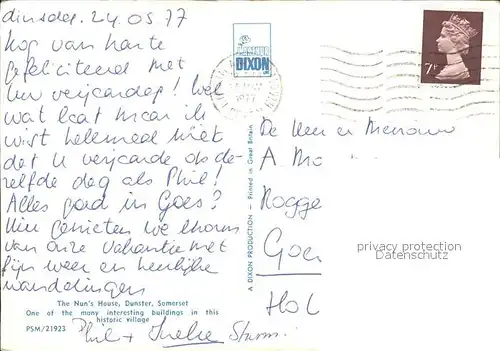 dinsdag. 24.05.77
Nog van harte
gefeliciteerd met
Uw verjaardag! Wel
wat laat maar ik
wist helemaal niet
dat U verjaarde op de-
zelfde dag als Phil!
Alles goed in Goes?
Hier genieten we enorm
van onze vakantie met
fijn weer en heerlijke
wandelingen
The Nun's House, Dunster, Somerset
One of the many interesting buildings in this
historic village
PSM/21923
Phil +
ARTHUR
DIXON
1977
A DIXON PRODUCTION - Printed in Great Britain
7P
De Heer en Mevrouw
A. Mo
Nogge
Goe
Hol
privacy protection
Datenschutz